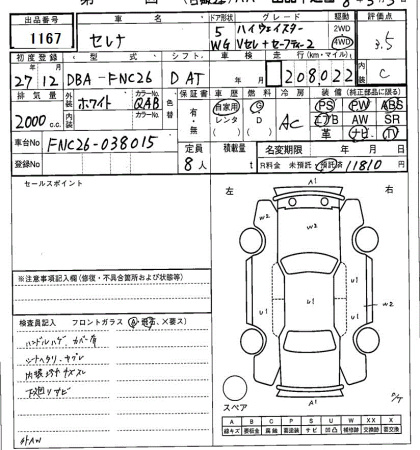 出品番号 車名 ドア形状 グレード 駆動 評価点
1167 セレナ 5 ハイウェイスター 2WD 3.5
WG Vセレ+セーフティー2 4WD
初度登録 型式 シフト 車検 走行(km・マイル) 内装
27 12 DBA-FNC26 D AT 年 月 208,022 C
排気量 外装 色 カラーNo. 色替 保証書 車歴 燃費 冷房 装備(純正部品に限る)
2000 c.c. ホワイト QAB 有・無 自家用 G AC PS PW ABS
内装 カラーNo. レンタ D エアB AW SR
革 ナビ TV
車台No FNC26-038015 定員 積載量 名変期限 年 月 日
登録No 8人 t R料金 未預託 預託済 11810 円
セールスポイント 左 右
A1
W2 W2
U1 U1 U1
W2
A1
スペア
※注意事項記入欄(修復・不具合箇所および状態等)
検査員記入 フロントガラス(A・飛石、×要ス)
ハンドルハゲ カバー有
シートヘタリ・ヤブレ
内張りキズスレ
下廻りサビ
外AW
A B C P S U W X XX
線キズ 要板金 腐蝕 要塗装 サビ 凹凸 補修跡 交換跡 要交換